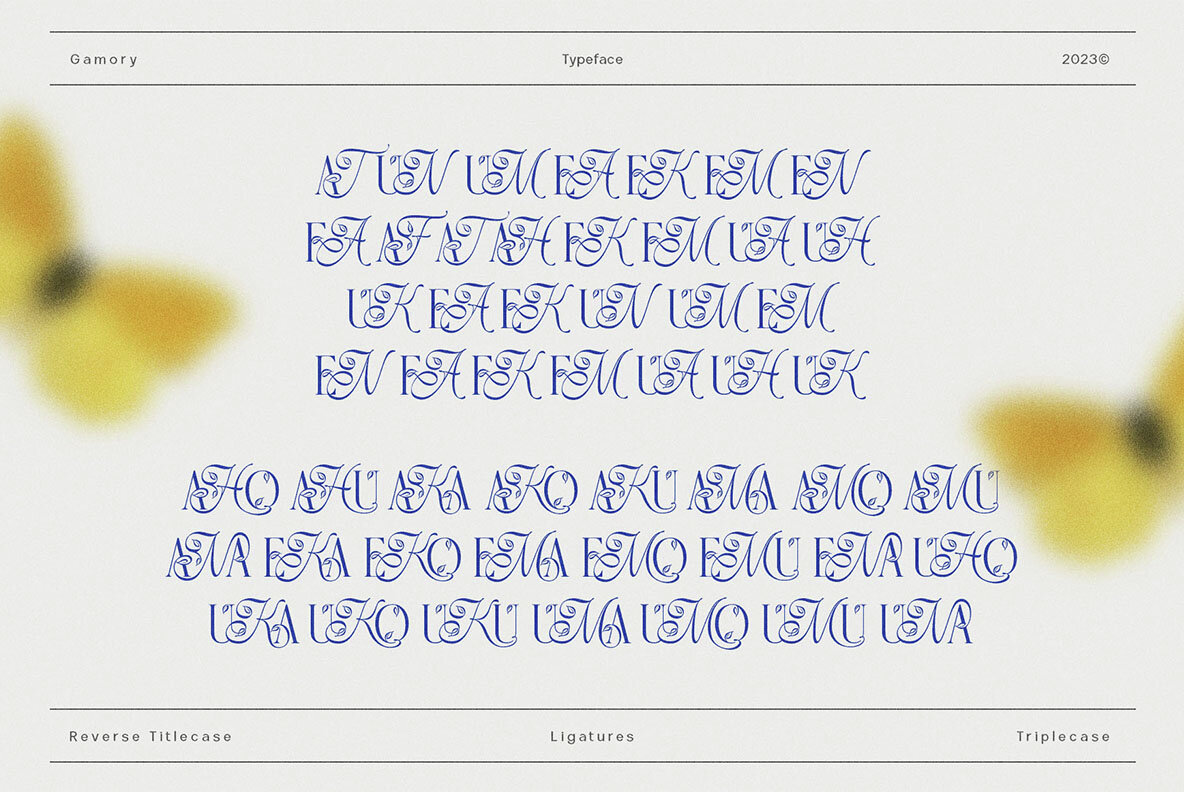 Gamory Typeface 2023©
AT UN UM EA EK EM EN
FA AF AT AH FK FM UA UH
UK EA EK UN UM EM
EN FA FK FM UA UH UK
AHO AHU AKA AKO AKU AMA AMO AMU
ANA EKA EKO EMA EMO EMU ENA UHO
UKA UKO UKU UMA UMO UMU UNA
Reverse Titlecase Ligatures Triplecase